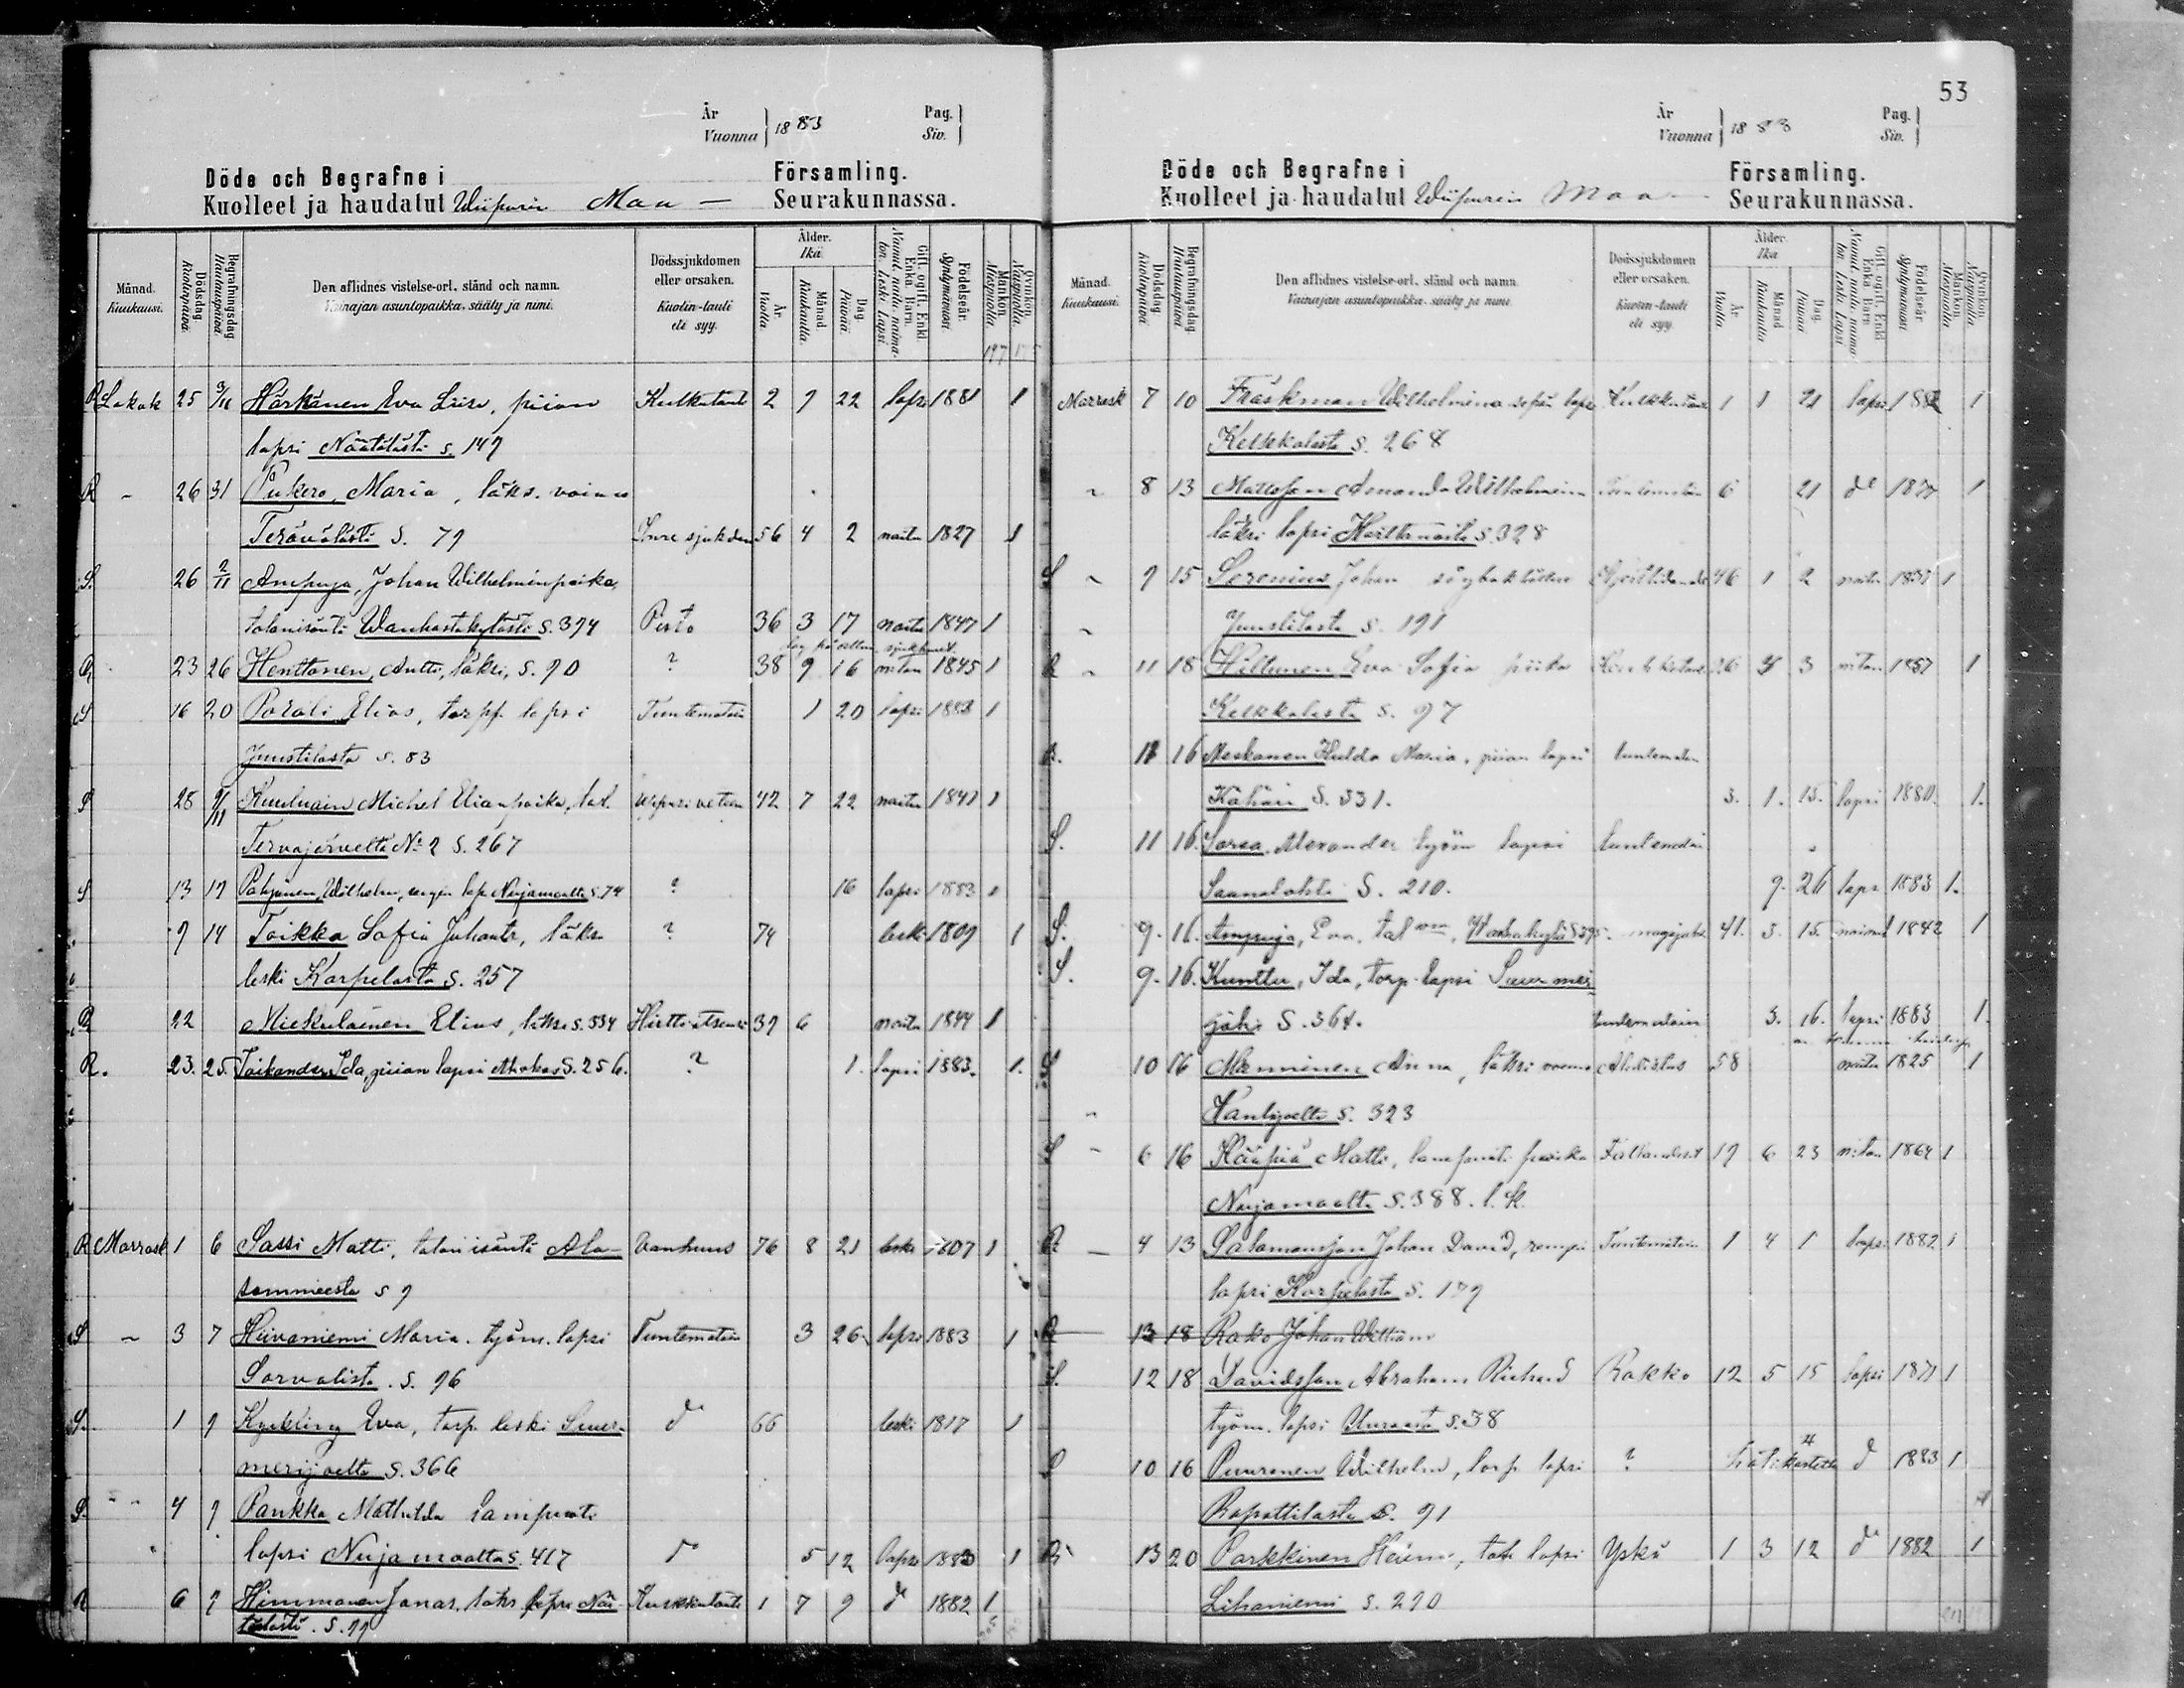 År
Vuonna } 1883
Pag.
Siv. }
Döde och Begrafne i Församling.
Kuolleet ja haudatut Wiipurin Maa — Seurakunnassa.
Månad. Kuukausi.
Dödsdag Kuolinpäivä.
Begrafningsdag Hautauspäivä.
Den aflidnes vistelse-ort, stånd och namn.
Vainajan asuntopaikka, sääty ja nimi.
Dödssjukdomen eller orsaken.
Kuolin-tauti eli syy.
Ålder. Ikä.
År. Vuotta.
Månad. Kuukautta.
Dag. Päivää.
Gift, ogift, Enkl. Enka. Barn.
Nainut, naitu, naimaton, leski, Lapsi.
Födelseår. Syntymävuosi.
Mankön. Miespuolta.
Qvinkön. Naispuolta.
197
R Lokak 25 3/11 Härkänen Eva Liisa, piian Kulkutauti 2 9 22 lapsi 1881 1
lapsi Näätälästä s. 147
R - 26 31 Pukero, Maria, läks. vaimo
Terävälästä S. 79 Inre sjukdom 56 4 2 naitu 1827 1
S. 26 2/11 Ampuja, Johan Wilhelmin poika,
talonisäntä Wanhastakylästä S. 394 Pisto 36 3 17 naitu 1847 1
R 23 26 Henttonen, Antti, läksi, S. 90 ? 38 9 16 niton 1845 1
S 16 20 Parali Elias, torpp. lapsi Tuntematoin 1 20 lapsi 1883 1
Juustilasta S. 83
S 28 9/11 Michel Elian poika, tal. 42 7 22 naitu 1841 1
Tervajärveltä No 2 S. 267
S 13 17 Pohjanen, Wilhelm, rengin lapsi Nuijamaalta S. 74 ? 16 lapsi 1883 1
9 14 Toikka Sofia Juhontr, läks. ? 74 leski 1809 1
leski Karpelasta S. 257
R 22 Mickulainen Elias, läksi S. 334 39 6 naitu 1844 1
R. 23. 25. Toikander Ida, piian lapsi Alhokas S. 256. ? 1. lapsi 1883. 1.
R Marrask 1 6 Sassi Matti, talon isäntä Ala- Vanhuus 76 8 21 leski 1807 1
sommeesta S 9
S - 3 7 Hiivaniemi Maria. työm. lapsi Tuntematoin 3 26 lapsi 1883 1
Sorvalista. S. 96
S. 1 9 Kyckling Eva, torp. leski Suur- do 66 leski 1817 1
merijoelta S. 366
S. " 4 9 Pankka Mathilda lampuoti
lapsi Nuijamaalta S. 417 do 5 12 lapsi 1883 1
R 6 9 Himmanen Jonas, läks. lapsi Nää- Kurkkutauti 1 7 9 do 1882 1
tälästä. S. 99
53
År
Vuonna } 1883
Pag.
Siv. }
Döde och Begrafne i Församling.
Kuolleet ja haudatut Wiipurin Maa — Seurakunnassa.
Månad. Kuukausi.
Dödsdag. Kuolinpäivä.
Begrafningsdag. Hautauspäivä.
Den aflidnes vistelse-ort, stånd och namn.
Vainajan asuntopaikka, sääty ja nimi.
Dödssjukdomen eller orsaken.
Kuolin-tauti eli syy.
Ålder. Ikä
År. Vuotta.
Månad Kuukautta.
Dag. Päivää.
Gift, ogift, Enkl. Enka. Barn
Nainut, naitu, naimaton, leski, Lapsi
Födelseår. Syntymävuosi.
Mankön. Miespuolta
Qvinkön. Naispuolta
Marrask 7 10 Fräskman Wilhelmina sepän lapsi Kurkkutauti 1 1 21 lapsi 1882 1
Kelkkalasta S. 268
" 8 13 Matsson Amanda Wilhelmina Tuntematoin 6 21 do 1877 1
läksi lapsi Herttuaala S. 328
S " 9 15 Serenius Johan 46 1 2 naitu 1837 1
" Juustilasta S. 191
R " 11 18 Hiltunen Eva Sofia piika Keuhkotauti 26 3 niton 1857 1
Kelkkalasta S. 97
R. 12 16 Meskanen Hulda Maria, piian lapsi tuntematoin
Kähäri S. 331. 3. 1. 13. lapsi 1880. 1.
S. 11 16. Sorsa Alexander työm lapsi tuntematoin
Saunalahti S. 210. 9. 26 lapsi 1883 1.
S. 9. 16. Ampuja, Eva, tal Wanhakylä S 395. 41. 3. 15. nainut 1842 1
S. 9. 16. Kunttu, Ida, torp. lapsi Suurmeri
joki S. 364. tuntematoin 3. 16. lapsi 1883 1.
S 10 16 Manninen Anna, läksi vaimo Ahdistus 58 naitu 1825 1
" Hanhijoelta S. 323
S - 6 16 Kääpiä Matti, lampuoti poika 19 6 23 niton 1864 1
Nuijamaalta S. 388. l. k.
R — 4 13 Salomonsson Johan David, rengin Tuntematoin 1 4 1 lapsi 1882 1
lapsi Karpelasta S. 179
R 13 18 Rako Johan William
S. 12 18 Davidsson Abraham Richard Rokko 12 5 15 lapsi 1871 1
työm. lapsi Uuraasta S. 38
S 10 16 Puuronen Wilhelm, torp. lapsi ? hätäkastettu do 1883 1
Rapattilasta S. 91
R 13 20 Parkkinen Helena, tal. lapsi Yskä 1 3 12 do 1882 1
Lihaniemi S. 290